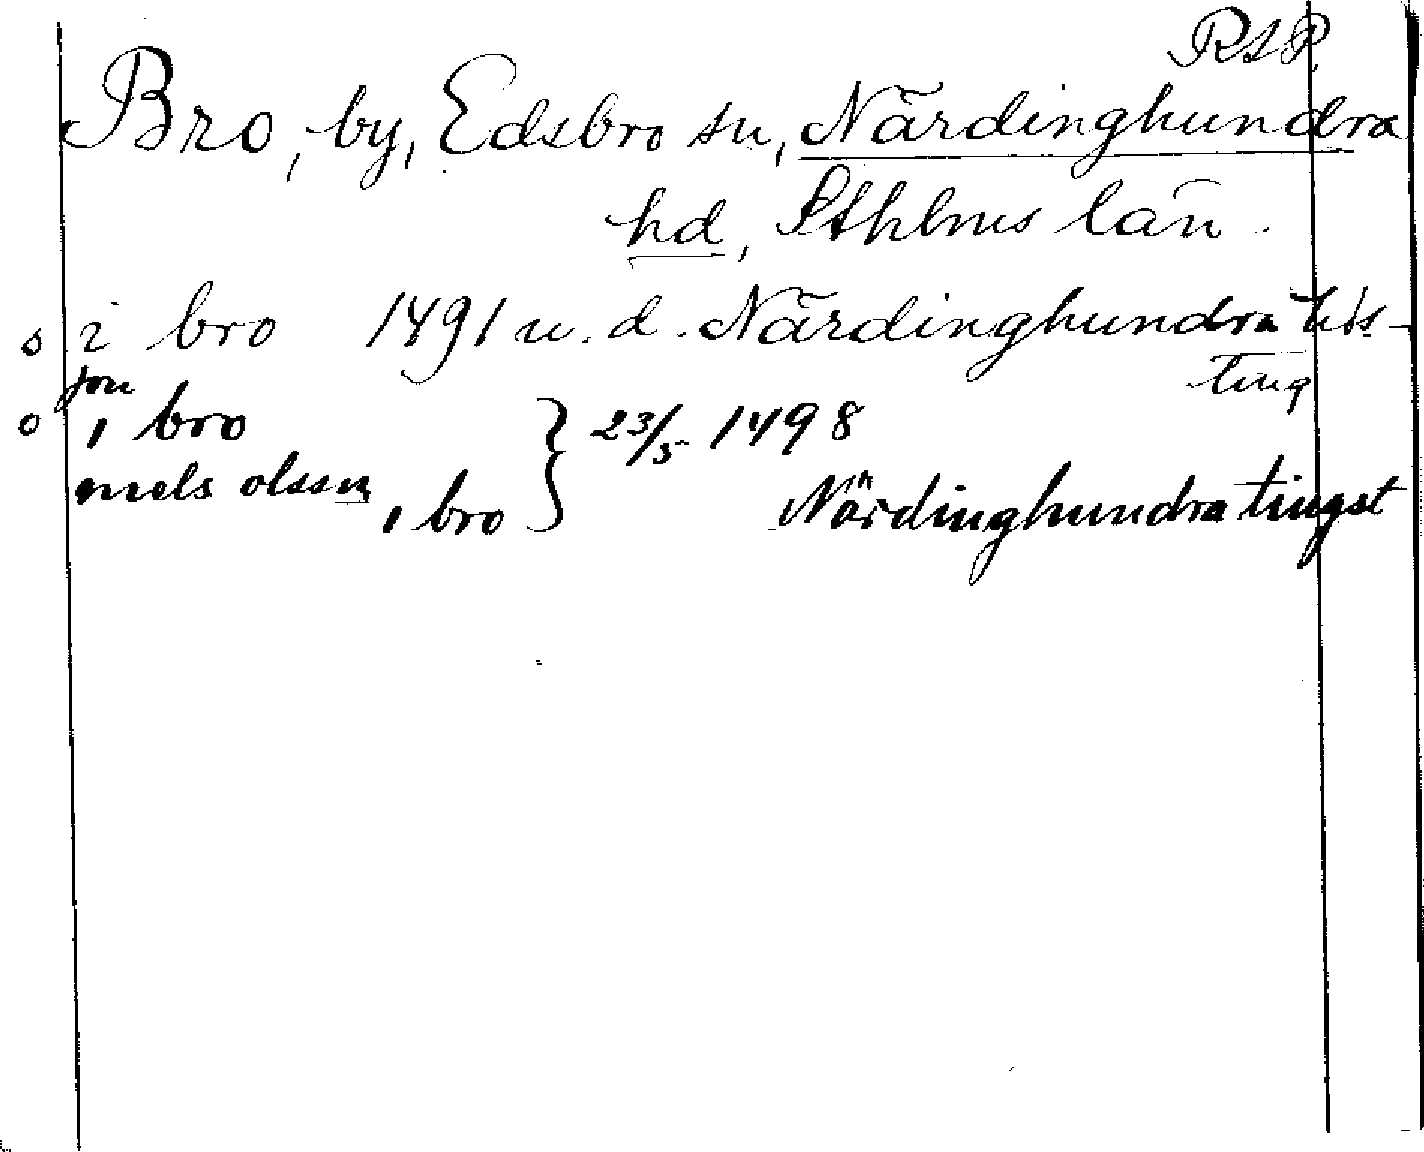 RAP.
Bro, by, Edsbro sn, Närdinghundra
hd, Sthlms län.
s i bro 1491 u. d. Närdinghundra hds-
ting
jon
o i bro } 23/5 1498
niels olssøn
i bro Närdinghundra tingst